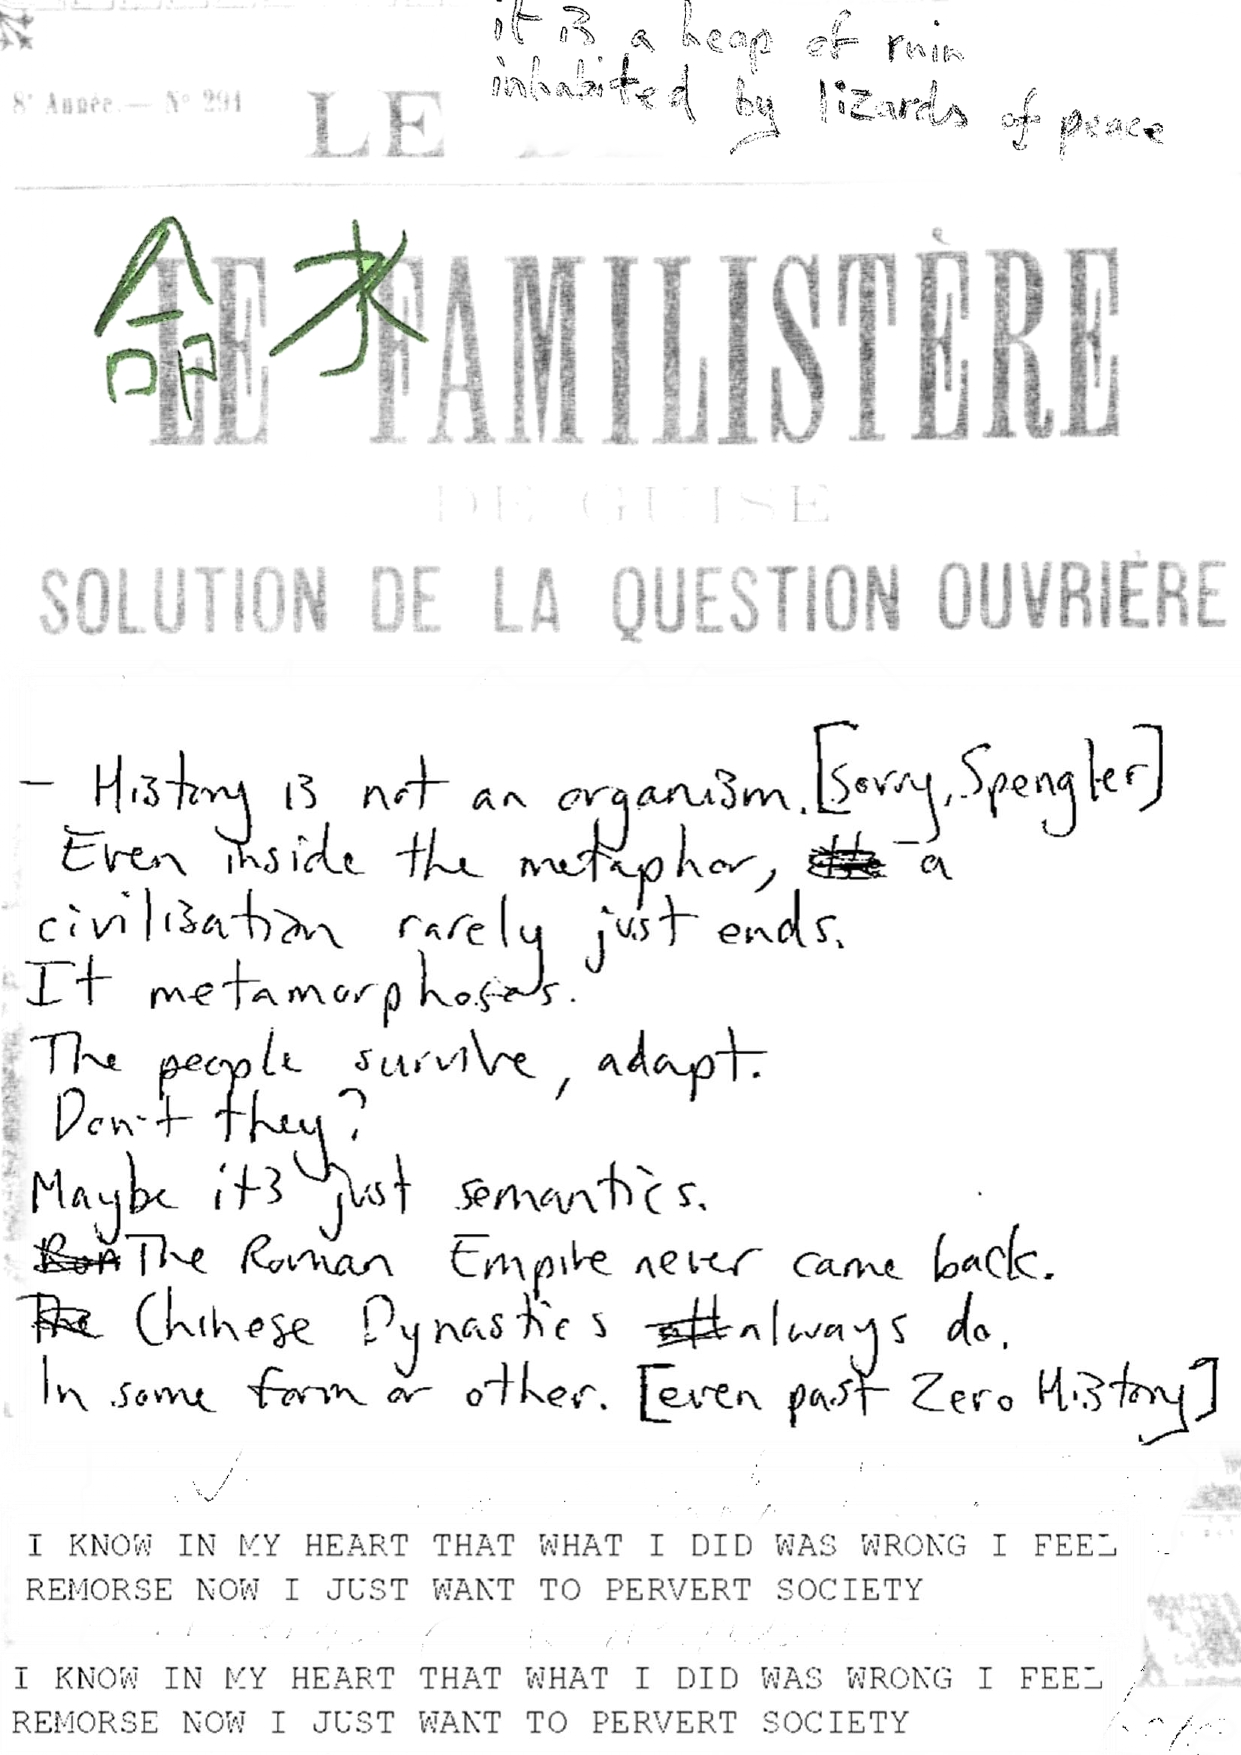 it is a heap of ruin
inhabited by lizards of peace
8e Année. — No 291
LE
命水
LE FAMILISTÈRE
DE GUISE
SOLUTION DE LA QUESTION OUVRIÈRE
- History is not an organism. [Sorry, Spengler]
Even inside the metaphor, a
civilisation rarely just ends.
It metamorphoses.
The people survive, adapt.
Don't they?
Maybe its just semantics.
The Roman Empire never came back.
Chinese Dynasties always do.
In some form or other. [even past Zero History]
I KNOW IN MY HEART THAT WHAT I DID WAS WRONG I FEEL
REMORSE NOW I JUST WANT TO PERVERT SOCIETY
I KNOW IN MY HEART THAT WHAT I DID WAS WRONG I FEEL
REMORSE NOW I JUST WANT TO PERVERT SOCIETY